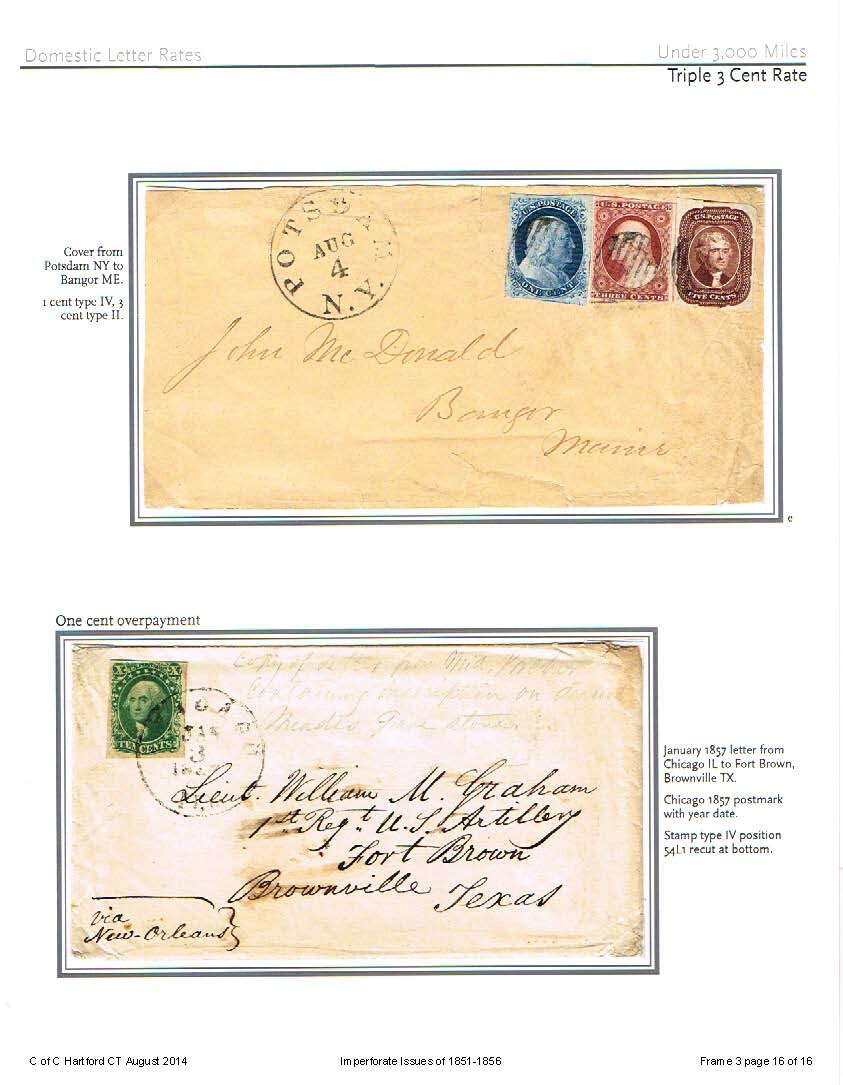 Domestic Letter Rates
Under 3,000 Miles
Triple 3 Cent Rate
Cover from
Potsdam NY to
Bangor ME.
1 cent type IV, 3
cent type II.
POTSDAM
AUG
4
N.Y.
U.S. POSTAGE
ONE CENT
U.S. POSTAGE
THREE CENTS
U.S. POSTAGE
FIVE CENTS
John McDonald
Bangor
Maine
e
One cent overpayment
TEN CENTS
CHICAGO
JAN
3
1857
Copy of
on
Lieut. William M. Graham
1st Regt. U.S. Artillery
Fort Brown
Brownville Texas
via
New-Orleans
January 1857 letter from
Chicago IL to Fort Brown,
Brownville TX.
Chicago 1857 postmark
with year date.
Stamp type IV position
54L1 recut at bottom.
C of C Hartford CT August 2014
Imperforate Issues of 1851-1856
Frame 3 page 16 of 16